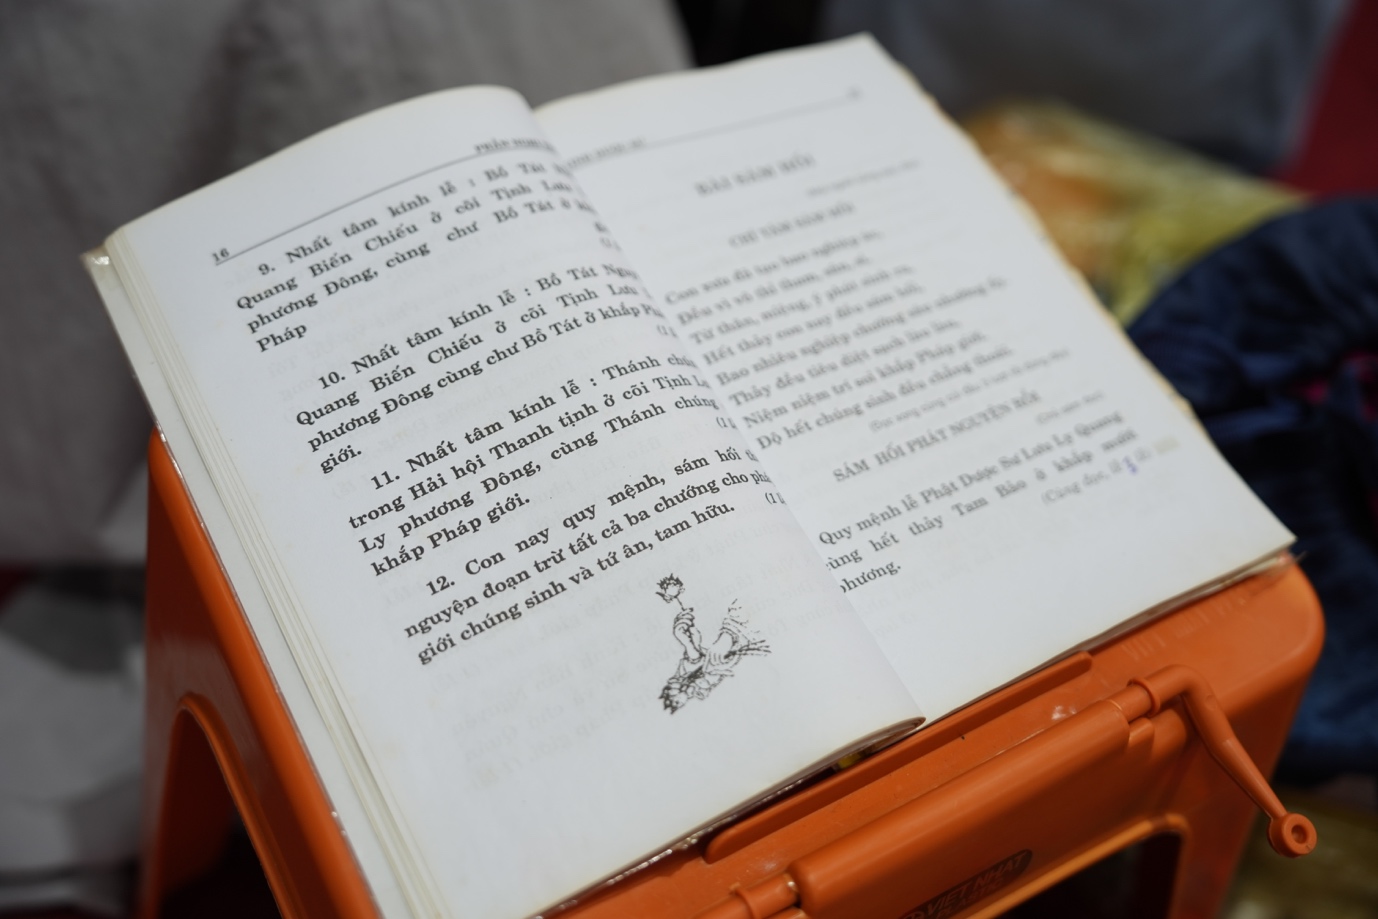 16
9. Nhất tâm kính lễ : Bồ Tát
Quang Biến Chiếu ở cõi Tịnh Lưu
phương Đông, cùng chư Bồ Tát ở
Pháp
10. Nhất tâm kính lễ : Bồ Tát
Quang Biến Chiếu ở cõi Tịnh Lưu
phương Đông cùng chư Bồ Tát ở khắp
giới.
11. Nhất tâm kính lễ : Thánh
trong Hải hội Thanh tịnh ở cõi Tịnh
Ly phương Đông, cùng Thánh chúng
khắp Pháp giới.
12. Con nay quy mệnh, sám hối
nguyện đoạn trừ tất cả ba chướng cho
giới chúng sinh và tứ ân, tam hữu.
BÀI SÁM HỐI
CHÍ TÂM SÁM HỐI
Con xưa đã tạo bao nghiệp ác,
Đều vì vô thỉ tham, sân, si,
Từ thân, miệng, ý phát sinh ra,
Hết thảy con nay đều sám hối,
Bao nhiêu nghiệp chướng sâu
Thảy đều tiêu diệt sạch làu làu,
Niệm niệm trí soi khắp Pháp giới,
Độ hết chúng sinh đều chẳng thoái.
SÁM HỐI PHÁT NGUYỆN RỒI
Quy mệnh lễ Phật Dược Sư Lưu Ly Quang
cùng hết thảy Tam Bảo ở khắp mười
phương.
VIỆT NHẬT